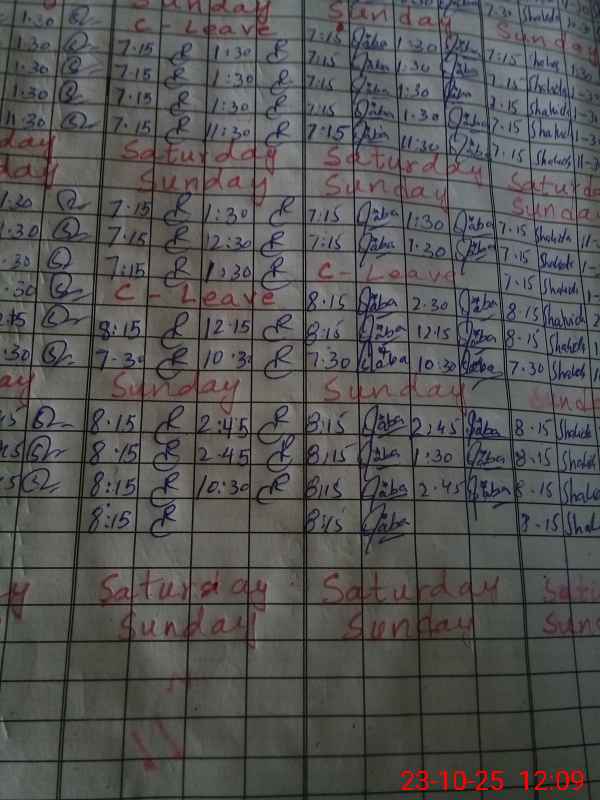 Sunday Sunday 7.30 Shahida
C-Leave Sunday
1.30 7.15 R 1:30 R 7:15 Jaba 1:30 Jaba 7:15
1.30 7.15 R 1:30 R 7:15 Jaba 1.30 Jaba 7.15
1.30 7.15 R 1:30 R 7:15 Jaba 1.30 Jaba 7.15 Shahida
11.30 7.15 R 11:30 R 7:15 Jaba 11:30 Jaba 7.15 Shahida
day Saturday Saturday
day Sunday Sunday Saturda
Sunday
1.30 7.15 R 1:30 R 7:15 Jaba 1:30 Jaba 7.15 Shahida
1.30 7.15 R 12:30 R 7:15 Jaba 7.30 Jaba 7.15 Shahida
.30 7:15 R 1:30 R C-Leave 7.15 Shahida
30 C-Leave 8.15 Jaba 2.30 Jaba 8.15 Shahida
8:15 R 12.15 R 8:15 Jaba 12.15 Jaba 8.15 Shahida
.30 7.30 R 10.30 R 7:30 Jaba 10.30 Jaba 7.30 Shahida
ay Sunday Sunday
45 8.15 R 2:45 R 8:15 Jaba 2:45 Jaba 8.15 Shahida
45 8.15 R 2.45 R 8:15 Jaba 1:30 Jaba 8.15 Shahida
8:15 R 10:30 R 8:15 Jaba 2.45 Jaba 8.15 Shahida
8:15 R 8:15 Jaba 8.15 Shahida
y Saturday Saturday Satu
Sunday Sunday Sund
23-10-25 12:09